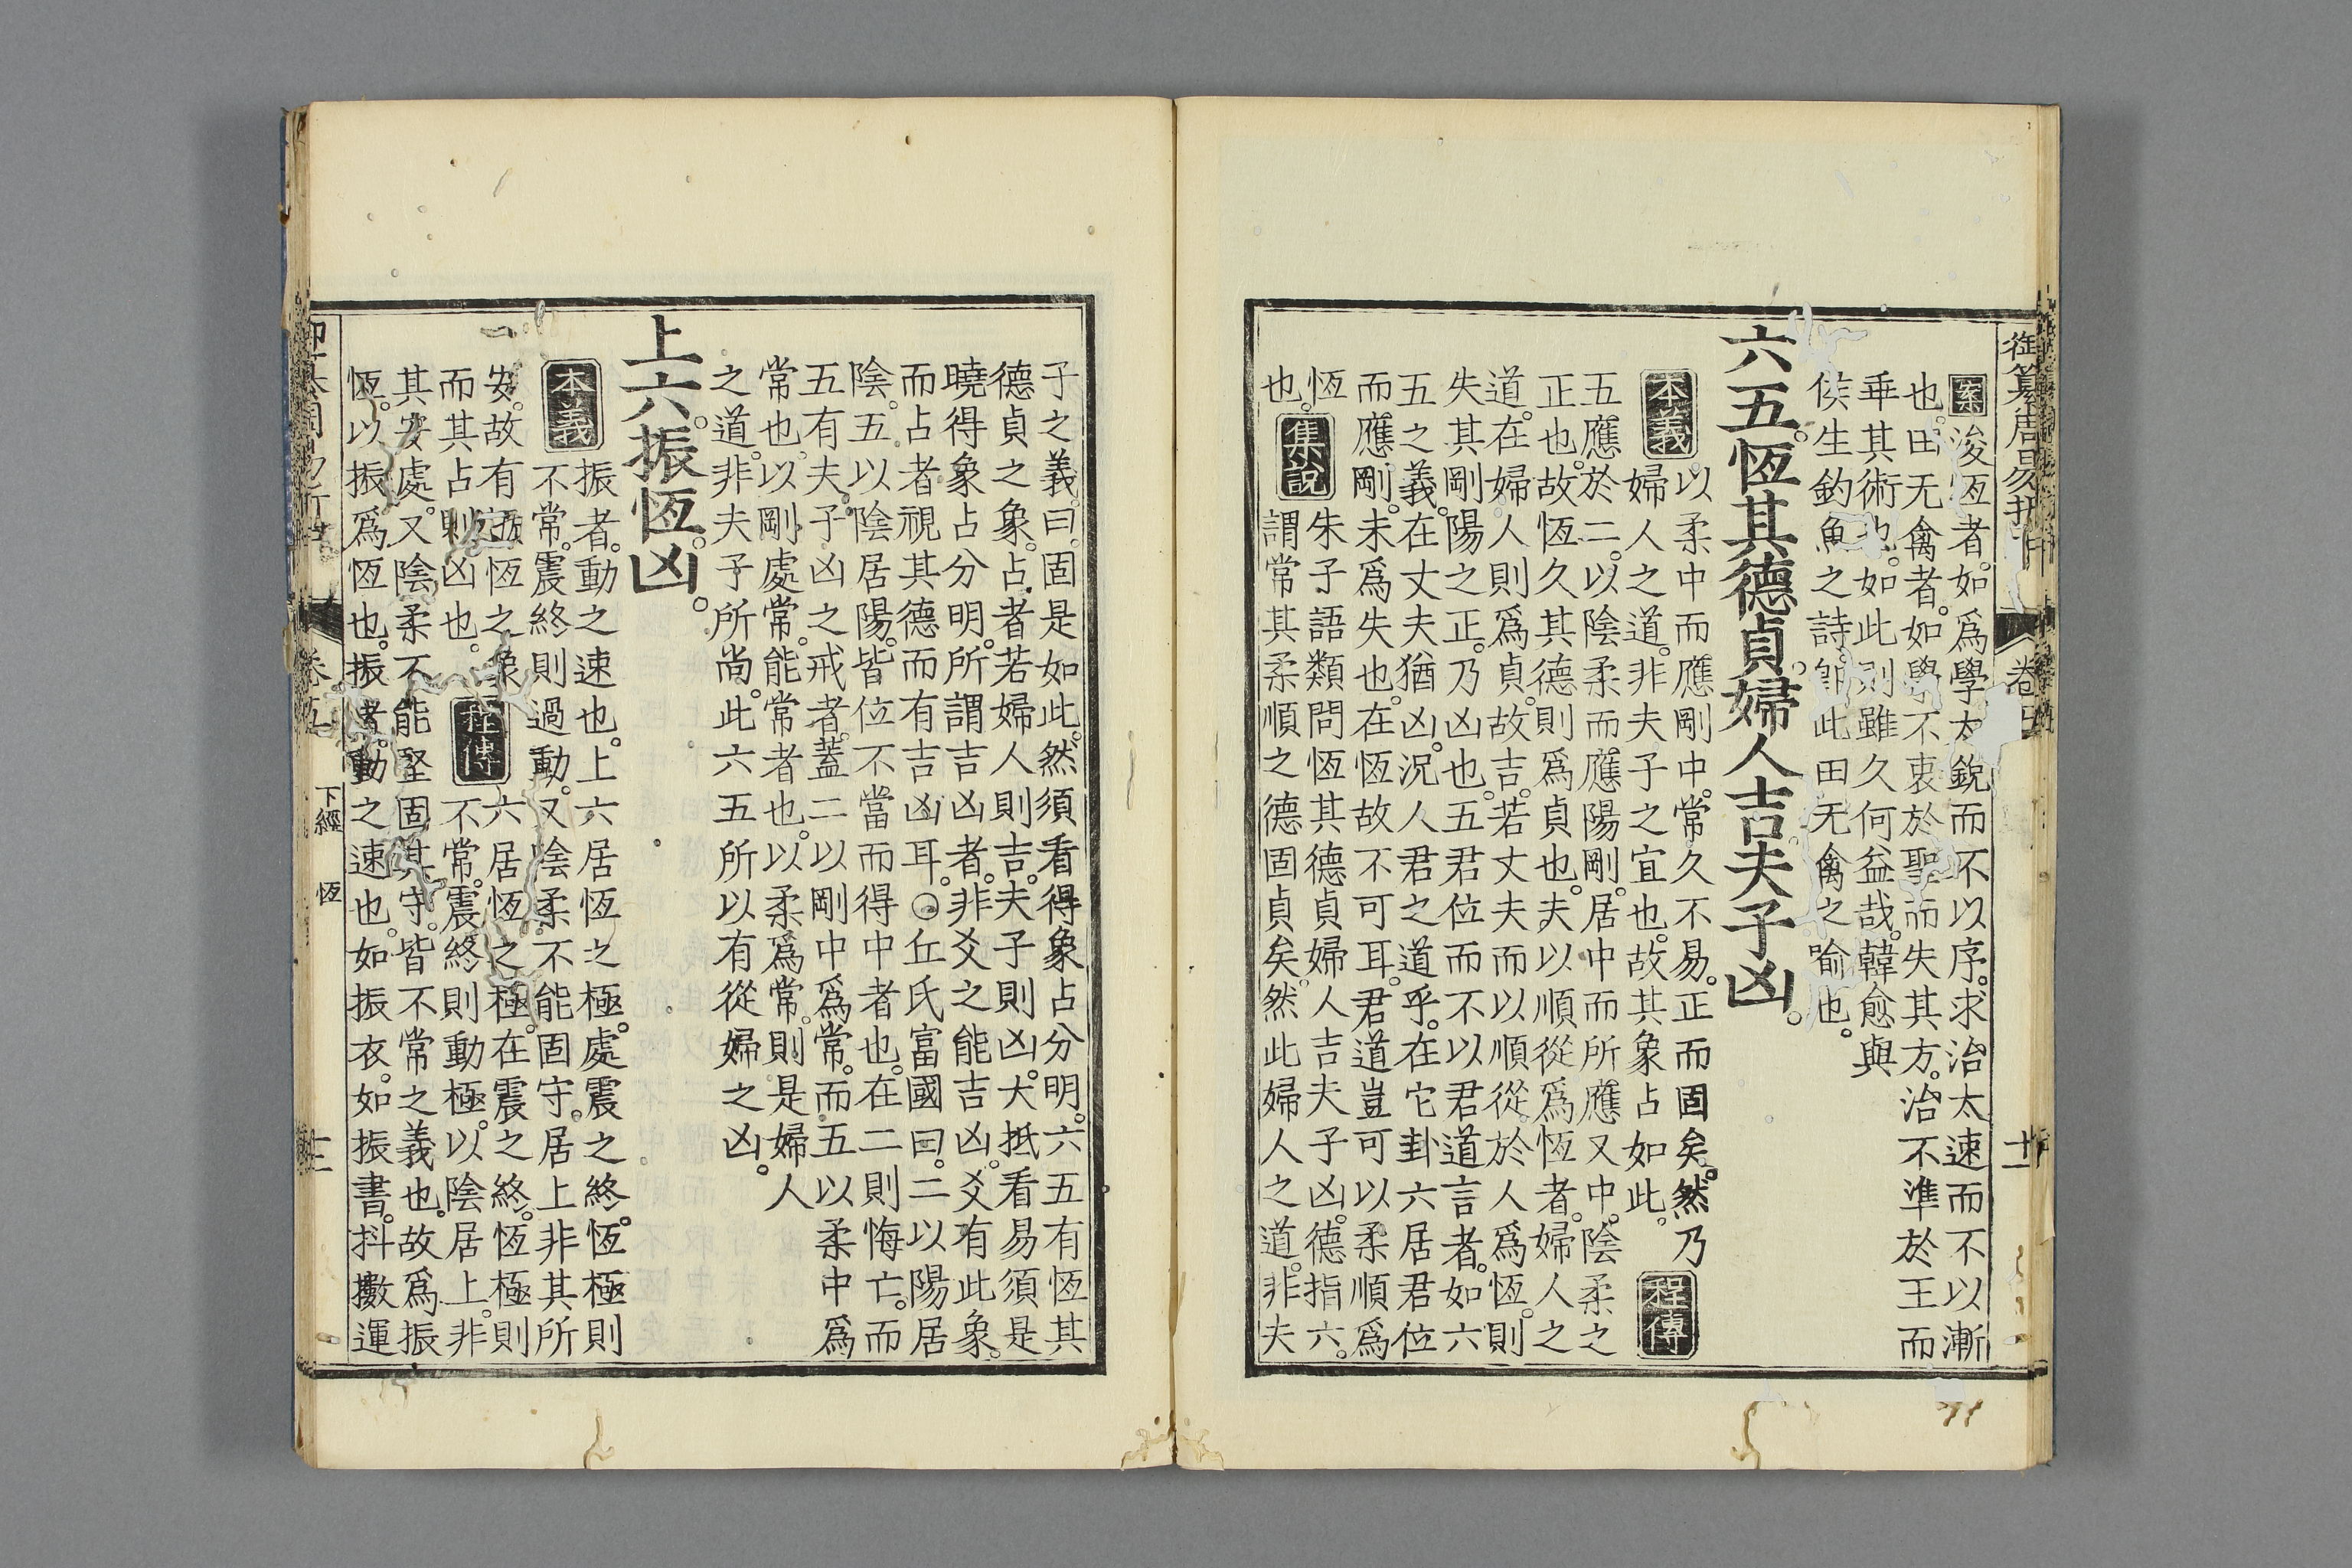 御纂周易折中 卷五 十一
案浚恆者。如爲學太銳而不以序。求治太速而不以漸
也。田无禽者。如學不衷於聖而失其方。治不準於王而
乖其術也。如此則雖久何益哉。韓愈與
侯生釣魚之詩。卽此田无禽之喻也。
六五。恆其德貞。婦人吉夫子凶。
本義以柔中而應剛中。常久不易。正而固矣。然乃
婦人之道。非夫子之宜也。故其象占如此。程傳
五應於二。以陰柔而應陽剛。居中而所應又中。陰柔之
正也。故恆久其德則爲貞也。夫以順從爲恆者。婦人之
道。在婦人則爲貞。故吉。若丈夫而以順從於人爲恆。則
失其剛陽之正。乃凶也。五君位而不以君道言者。如六
五之義。在丈夫猶凶。況人君之道乎。在它卦六居君位
而應剛。未爲失也。在恆故不可耳。君道豈可以柔順爲
恆
也。集說朱子語類問恆其德貞婦人吉夫子凶。德指六。
謂常其柔順之德固貞矣。然此婦人之道。非夫
子之義。曰。固是如此。然須看得象占分明。六五有恆其
德貞之象。占者若婦人則吉。夫子則凶。大抵看易須是
曉得象占分明。所謂吉凶者。非爻之能吉凶。爻有此象。
而占者視其德而有吉凶耳。○丘氏富國曰。二以陽居
陰。五以陰居陽。皆位不當而得中者也。在二則悔亡。而
五有夫子凶之戒者。蓋二以剛中爲常。而五以柔中爲
常也。以剛處常。能常者也。以柔爲常。則是婦人
之道。非夫子所尚。此六五所以有從婦之凶。
上六。振恆。凶。
本義振者。動之速也。上六居恆之極。處震之終。恆極則
不常。震終則過動。又陰柔不能固守。居上非其所
安。故有振恆之象。而其占則凶也。程傳六居恆之極。在震之終。恆極則
不常。震終則動極。以陰居上。非
其安處。又陰柔不能堅固其守。皆不常之義也。故爲振
恆。以振爲恆也。振者。動之速也。如振衣。如振書。抖擻運
卷五 下經 恆 十二